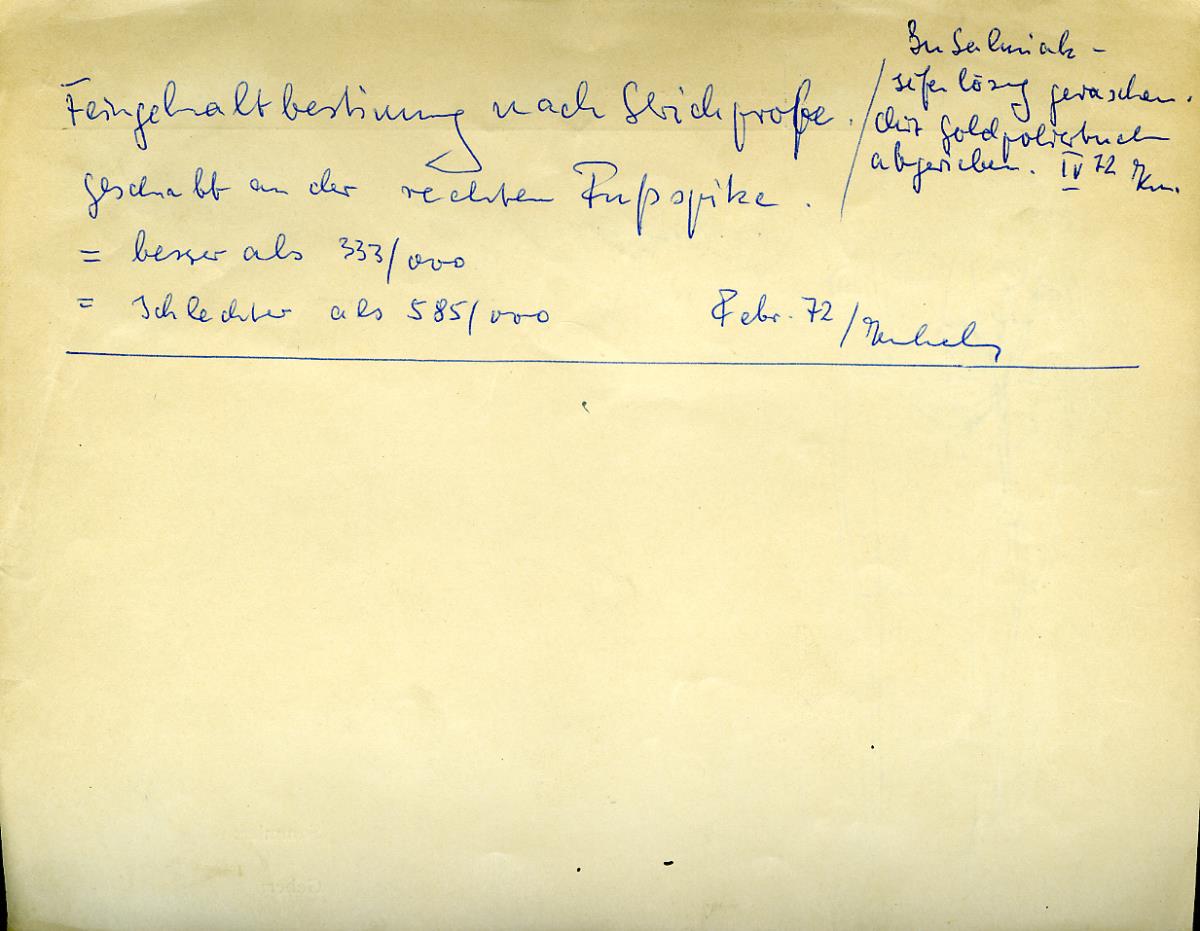 Feingehaltbestimmung nach Strichprobe.
geschabt an der rechten Fußspitze.
= besser als 333/000
= schlechter als 585/000 Febr. 72/
In Salmiak-
seifenlösung gewaschen.
Mit Goldpoliertuch
abgerieben. IV 72